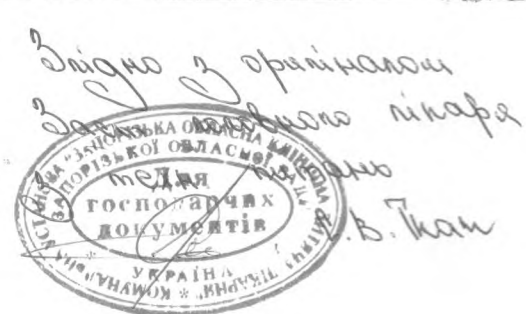 Згідно з оригіналом
Заст. головного лікаря
з мед. питань
В. Ткач
КОМУНАЛЬНА УСТАНОВА "ЗАПОРІЗЬКА ОБЛАСНА КЛІНІЧНА ДИТЯЧА ЛІКАРНЯ"
ЗАПОРІЗЬКОЇ ОБЛАСНОЇ РАДИ
Для
господарчих
документів
УКРАЇНА